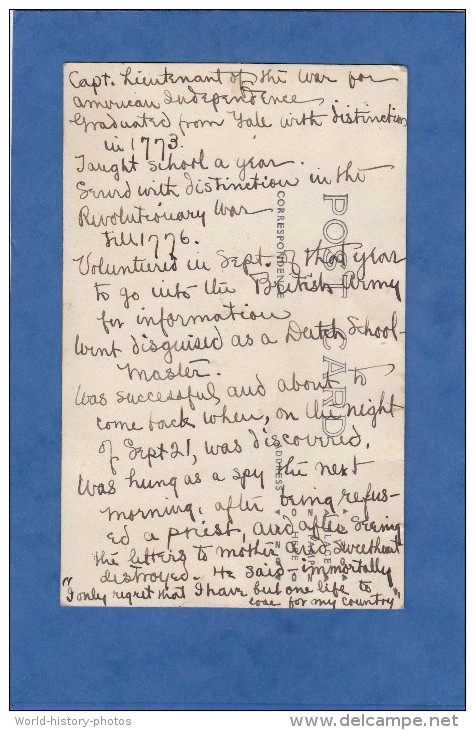 Capt. Lieutenant of the War for
American Independence
Graduated from Yale with distinction
in 1773.
Taught school a year.
Servd with distinction in the
Revolutionary War
till 1776.
Voluntered in Sept. of that year
to go into the British Army
for information
Went disguised as a Dutch School-
Master.
Was successful, and about to
come back when, on the night
of Sept 21, was discovered.
Was hung as a spy the next
morning, after being refus-
ed a priest, and after seeing
the letters to mother and sweetheart
destroyed. He said - immortally
"I only regret that I have but one life to
lose for my country"
POST CARD
CORRESPONDENCE
ADDRESS
PLACE
STAMP
HERE
World-history-photos
delcampe.net